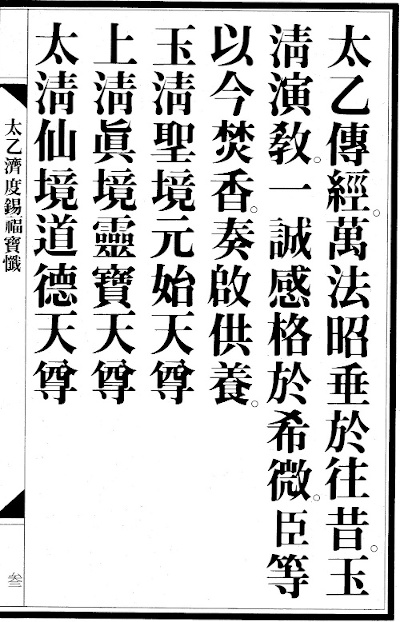 太乙傳經。萬法昭垂於往昔。玉
清演教。一誠感格於希微。臣等
以今焚香。奏啟供養。
玉清聖境元始天尊
上清眞境靈寶天尊
太清仙境道德天尊
太乙濟度錫福寶懺
叁